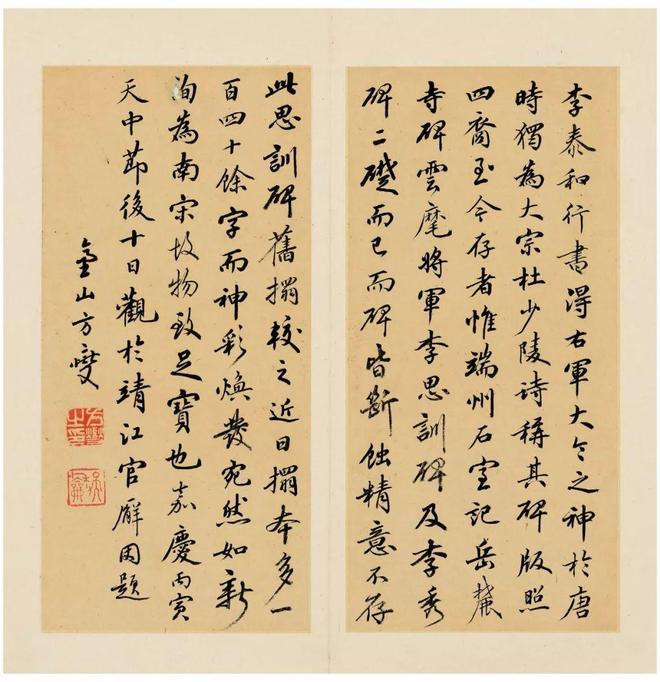 李泰和行書得右軍大令之神於唐
時獨為大宗杜少陵诗稱其碑版照
四裔至今存者惟端州石室記岳麓
寺碑雲麾將軍李思訓碑及李秀
碑二礎而已而碑皆斷蝕精意不存
此思訓碑舊搨較之近日搨本多一
百四十餘字而神彩煥發宛然如新
洵為南宋故物致足寶也嘉慶丙寅
天中節後十日觀於靖江官廨因題
金山方燮